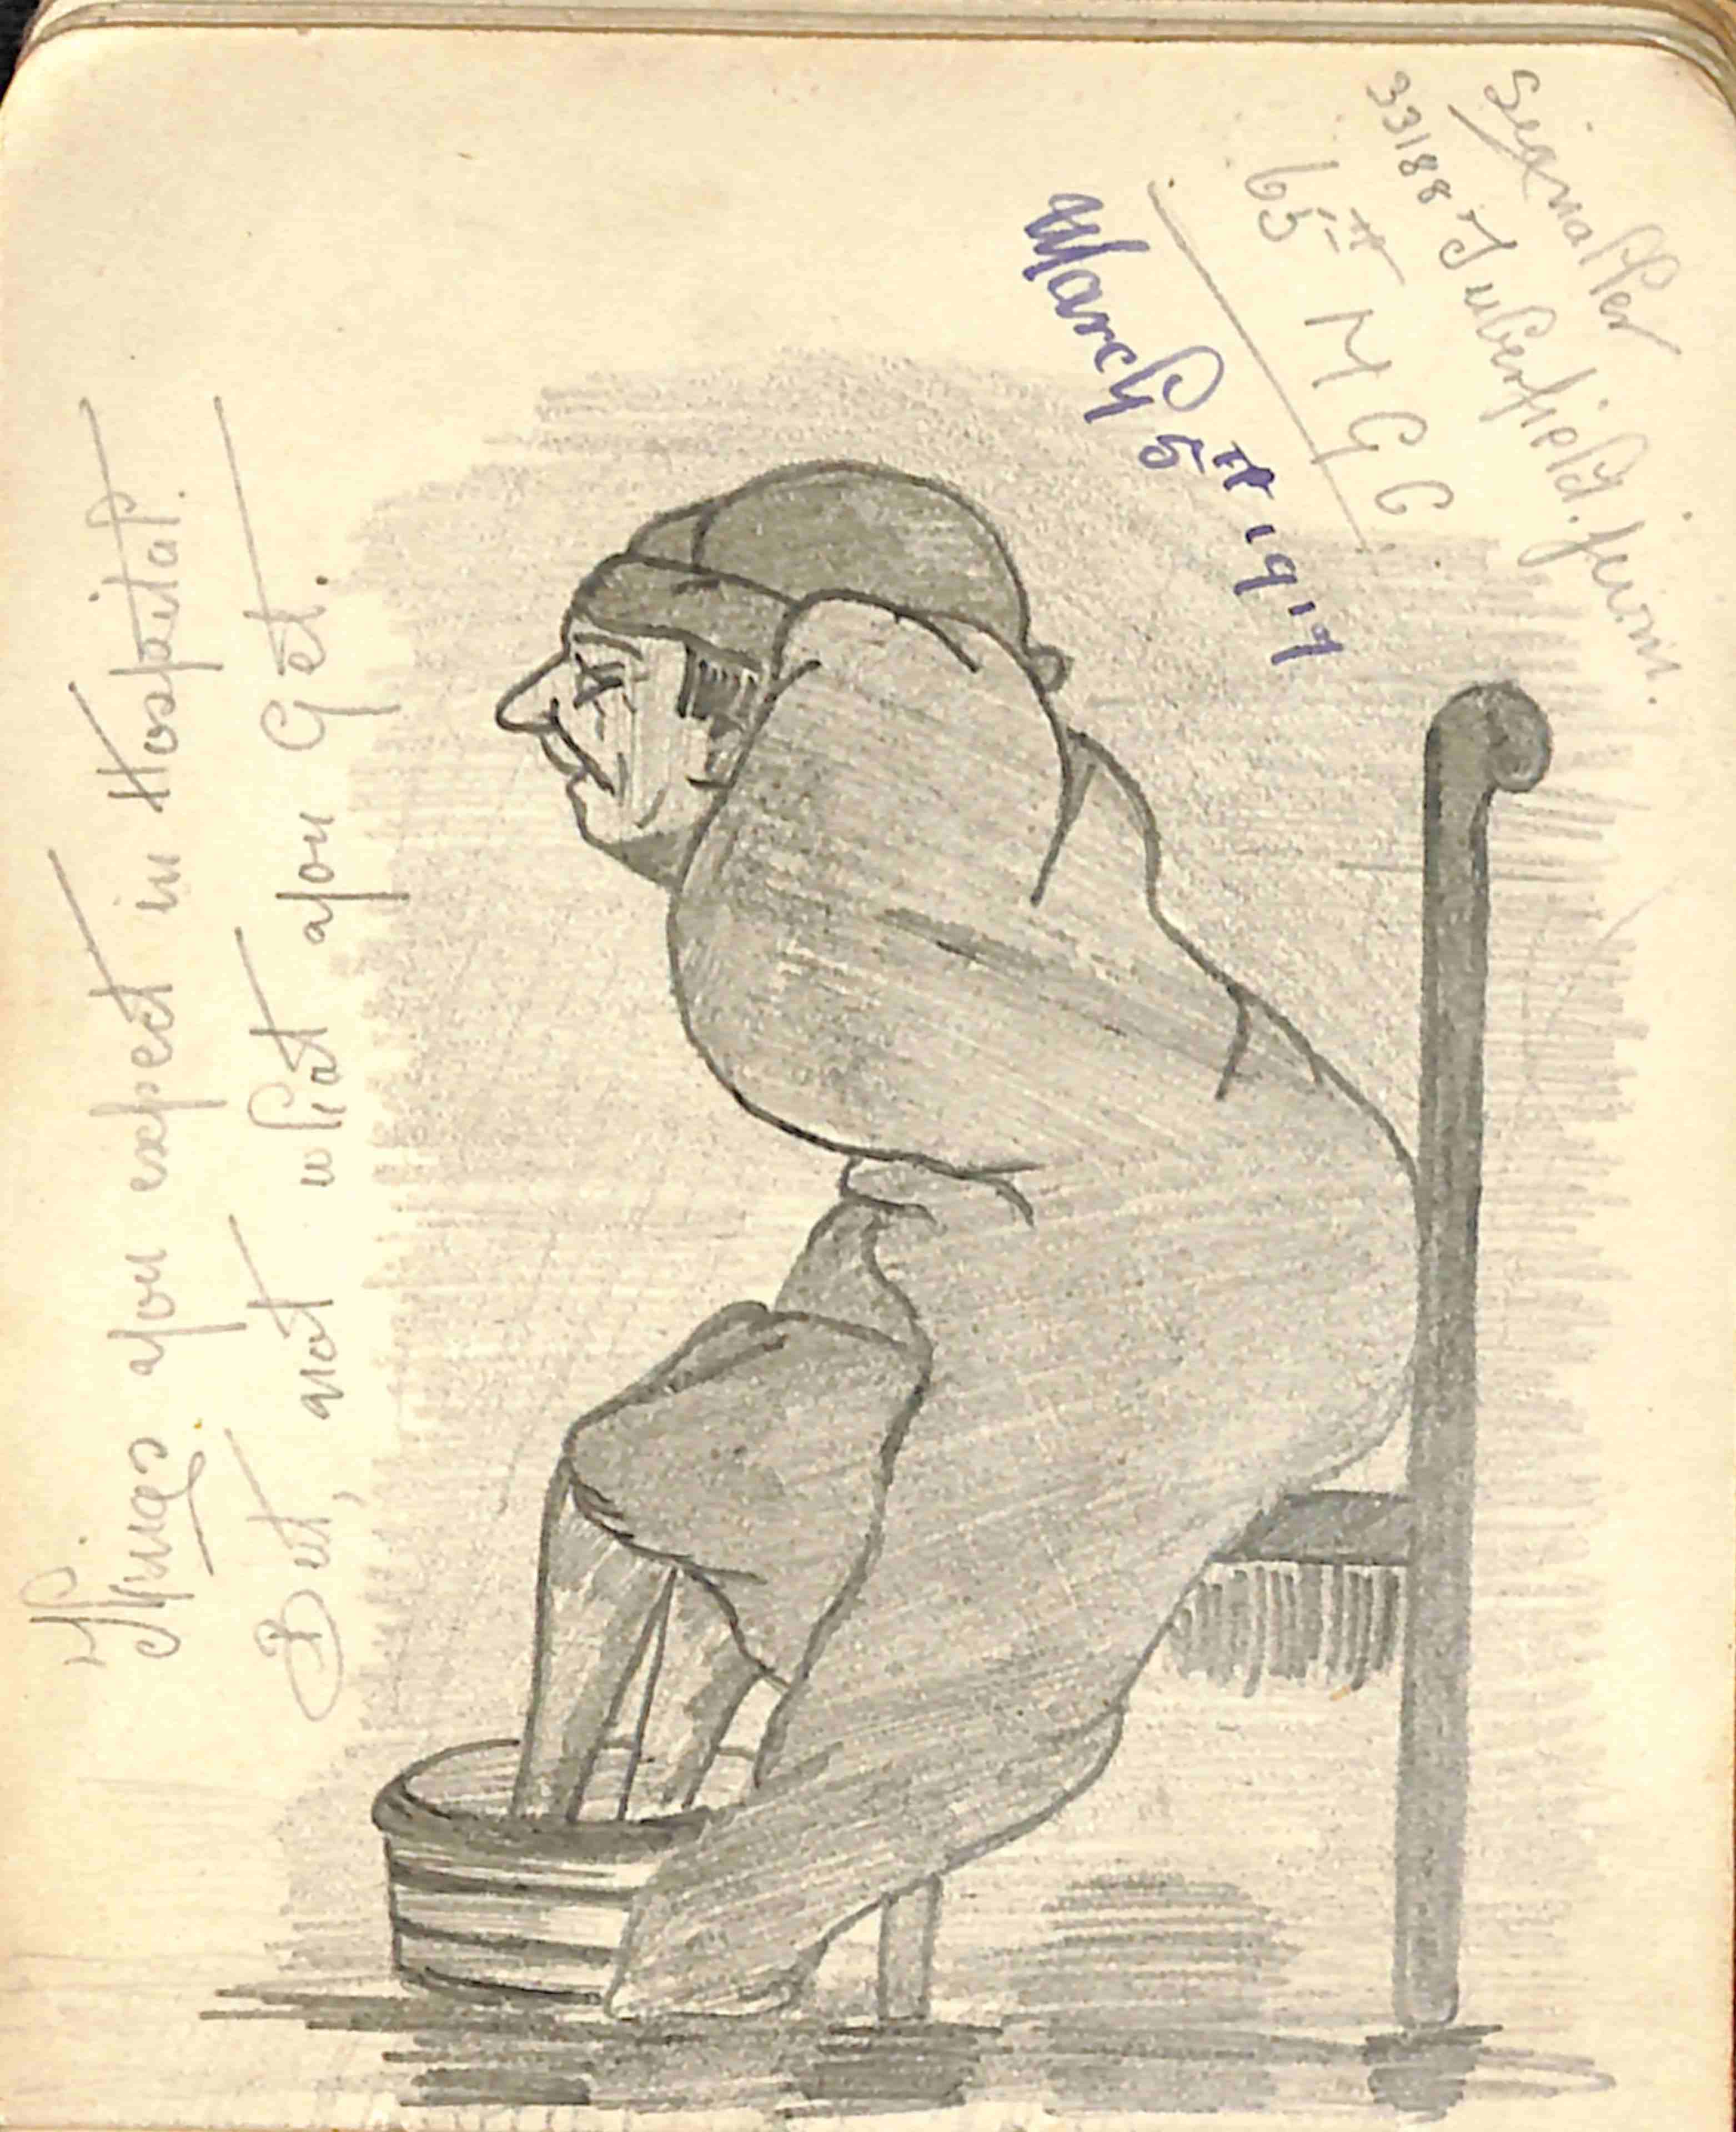 Things you expect in Hospital.
But, not what you Get.
Signaller
33188
65th M G C
March 5th 1917